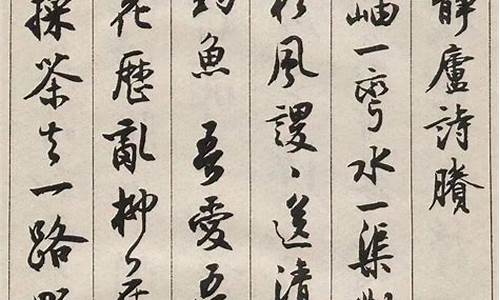 靜廬詩賸
岫一彎水一渠
松風謖〻送清
釣魚 吾愛吾
花歷亂柳
採茶去一路